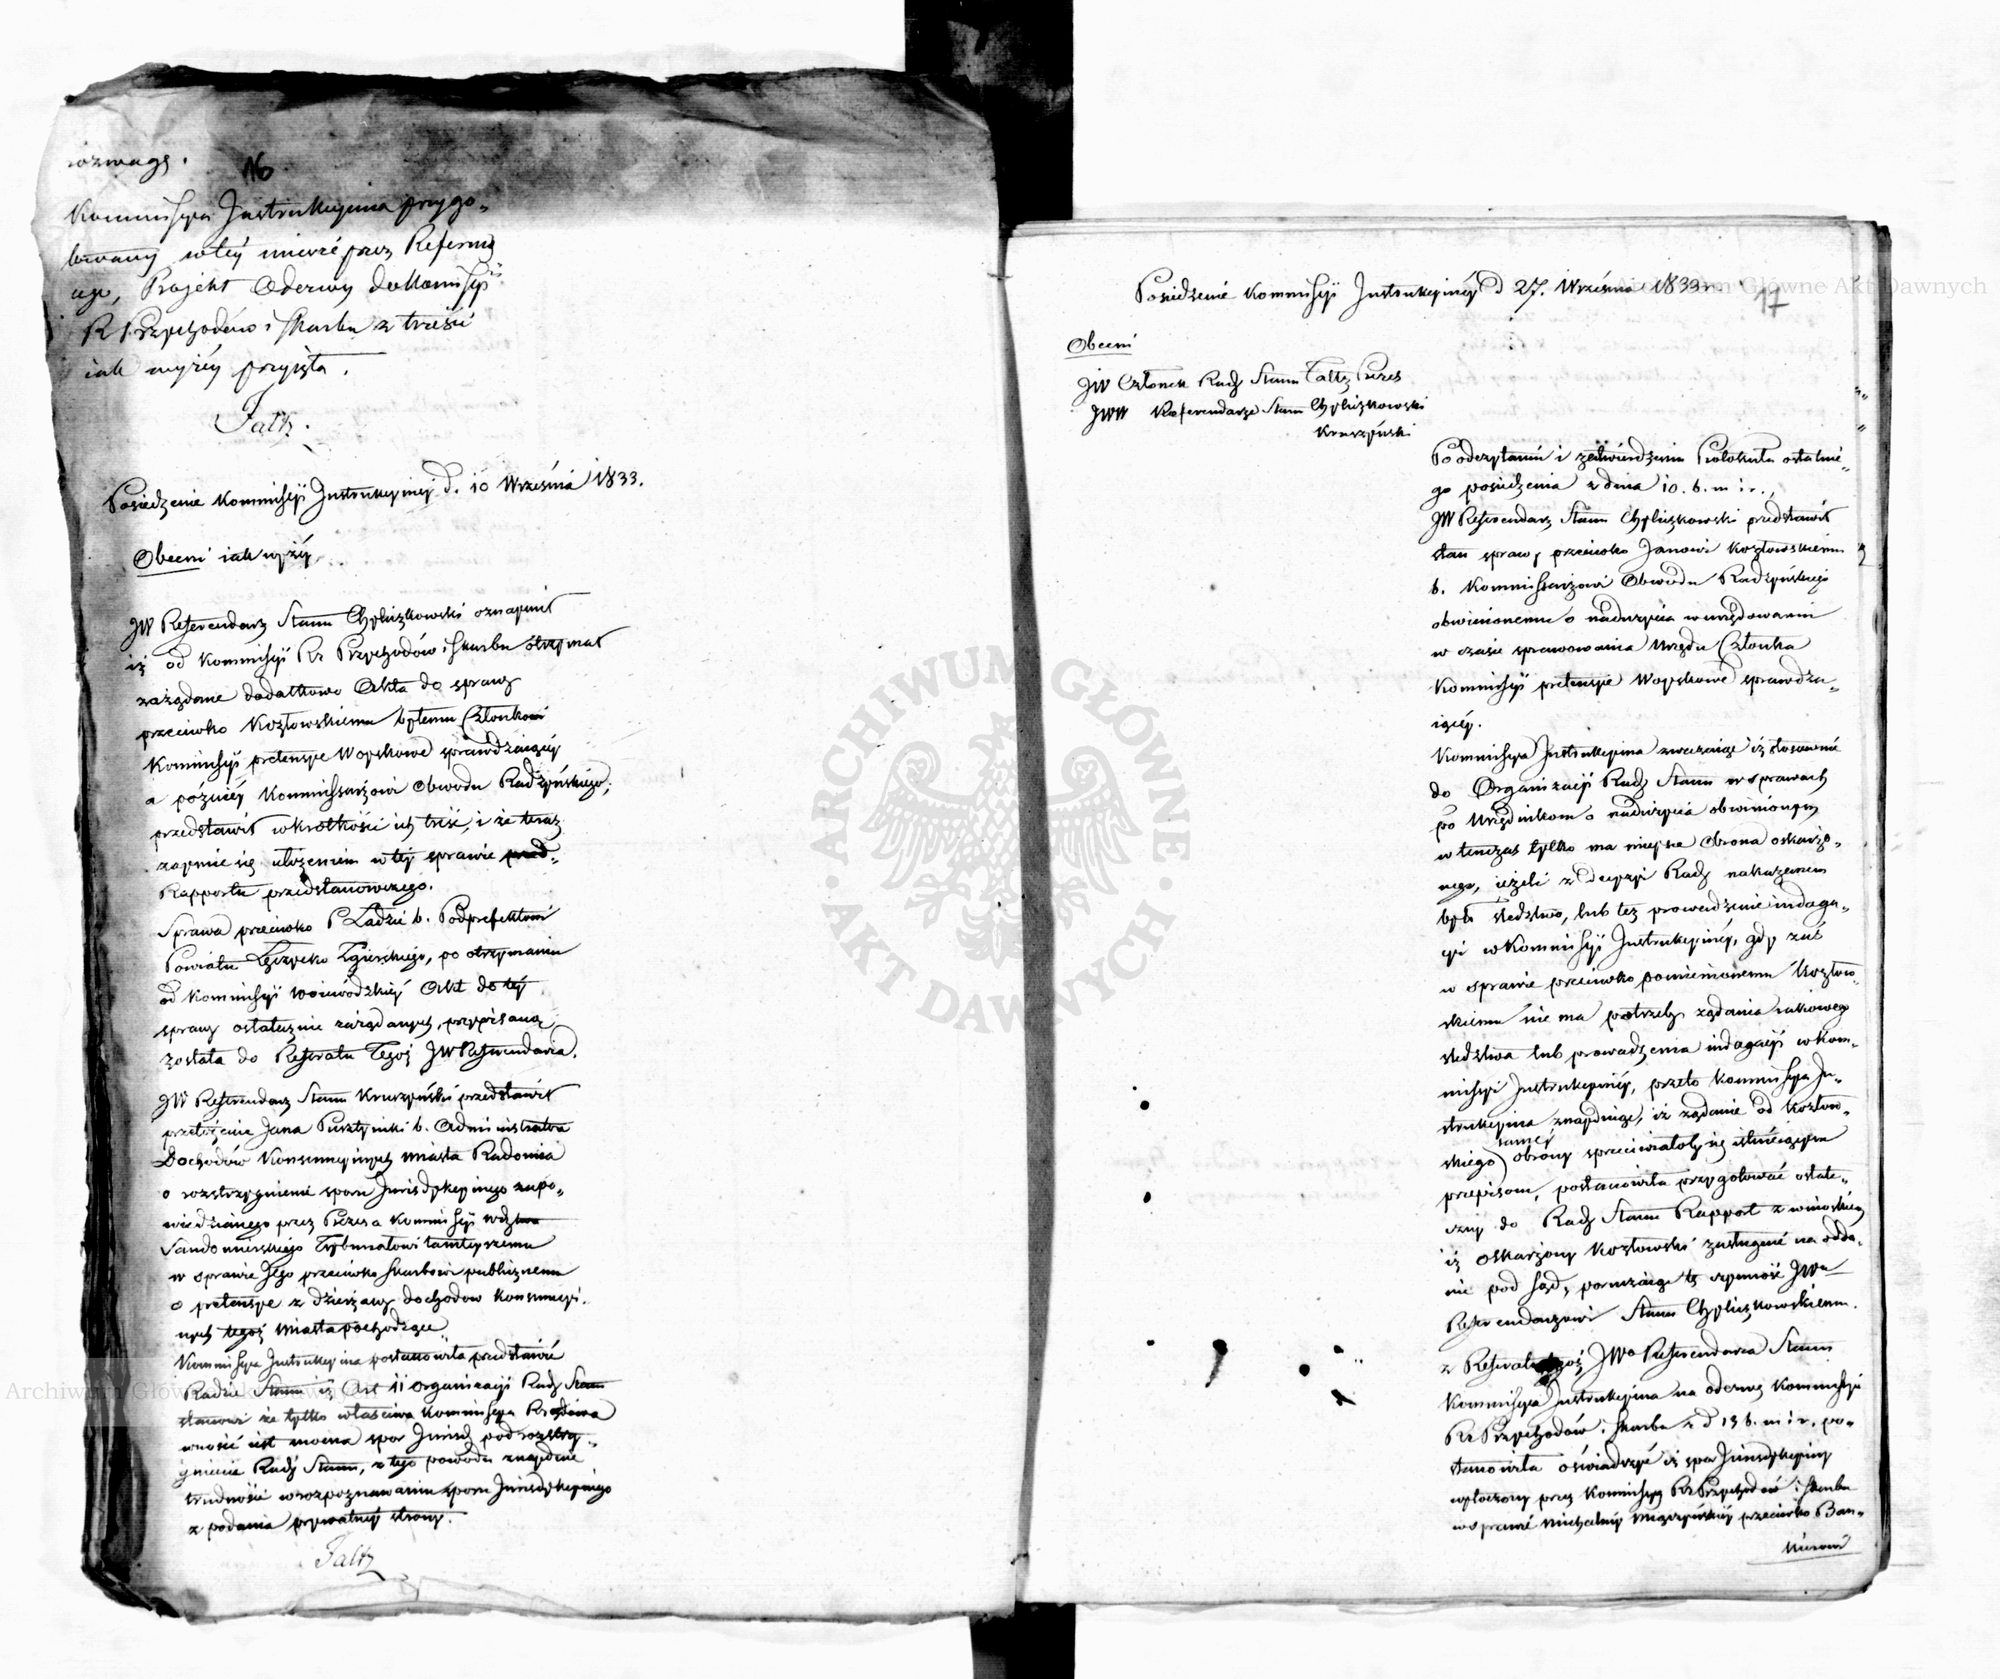 rozwagę.
16
Kommissya Instrukcyjna przygo-
towany w tey mierze przez Referuią
cego, Projekt Odezwy do Kommissyi
R. Przychodów i Skarbu z treści
iak wyżey przyięła.
Faltz.
Posiedzenie Kommissyi Instrukcyiney d. 10 Września 1833.
Obecni iak wyżey
JW Referendarz Stanu Chyliczkowski oznaymił
iż od Kommissyi Rz Przychodów i Skarbu otrzymał
zażądane dodatkowo Akta do sprawy
przeciwko Kozłowskiemu byłemu Członkowi
Kommissyi pretensye Woyskowe sprawdzaiącey
a późniey Kommissarzowi Obwodu Radzyńskiego;
przedstawił w krótkości ich treść, i że teraz
zaymie się ułożeniem w tey sprawie
Rapportu przedstanowczego.
Sprawa przeciwko Ładzie b. Podprefektowi
Powiatu Łęczycko Zgierskiego, po otrzymaniu
od Kommissyi Woiewódzkiey Akt do tey
sprawy ostatecznie zażądanych, przypisaną
została do Referatu Tegoż JW Referendarza.
JW Referendarz Stanu Kruszyński przedstawił
przełożenie Jana b. Administratora
Dochodów Konsumcyinych Miasta Radomia
o rozstrzygnienie sporu Jurisdykcyinego zapo-
wiedzianego przez Prezesa Kommissyi Wdztwa
Sandomierskiego Trybunałowi tamteyszemu
w sprawie Jego przeciwko Skarbowi publicznemu
o pretensye z dzierżawy dochodów konsumcyi-
nych tegoż Miasta pochodzące
Kommissya Instrukcyina postanowiła przedstawić
Radzie Stanu iż Art 11 Organizacyi Rady Stanu
stanowi że tylko właściwa Kommissya Rządowa
wnosić iest mocna spór Jurisd. pod rozstrzy-
gnienie Rady Stanu, z tego powodu znayduie
trudność w rozpoznawaniu sporu Jurisdykcyinego
z podania prywatney strony.
Faltz
Posiedzenie Kommissyi Instrukcyiney d 27. Września 1833 r.
17
Obecni
JW Członek Rady Stanu Faltz Prezes
JWW Referendarze Stanu Chyliczkowski
Kruszyński
Po odczytaniu i zatwierdzeniu Protokułu ostatnie-
go posiedzenia z dnia 10. b. m i r.,
JW Referendarz Stanu Chyliczkowski przedstawił
stan sprawy przeciwko Janowi Kozłowskiemu
b. Kommissarzowi Obwodu Radzyńskiego
obwinionemu o nadużycia w urzędowaniu
w czasie sprawowania Urzędu Członka
Kommissyi pretensye Woyskowe sprawdza-
iącey.
Kommissya Instrukcyina zważaiąc iż stosownie
do Organizacyi Rady Stanu w sprawach
po Urzędnikom o nadużycia obwinionym
w tenczas tylko ma mieysce Obrona oskarżo-
nego, ieżeli z decyzyi Rady nakazanem
było śledztwo, lub też prowadzenie indaga-
cyi w Kommissyi Instrukcyiney, gdy zaś
w sprawie przeciwko pomienionemu Kozłow-
skiemu nie ma potrzeby żądania takowego
śledztwa lub prowadzenia indagacyi w Kom-
missyi Instrukcyiney, przeto Kommissya In-
strukcyina znayduiąc, iż żądanie od Kozłow-
skiego samey obrony sprzeciwiałoby się istnieiącym
przepisom, postanowiła przygotować ostate-
czny do Rady Stanu Rapport z wnioskiem
iż oskarżony Kozłowski zasługuie na odda-
nie pod Sąd, poruczaiąc tę czynność JWu
Referendarzowi Stanu Chyliczkowskiemu.
z Referatu tegoż JWo Referendarza Stanu
Kommissya Instrukcyina na odezwę Kommissyi
Rz Przychodów i Skarbu z d 13 b. m i r. po-
stanowiła oświadczyć iż spór Jurisdykcyiny
wytoczony przez Kommissyę Rz Przychodów i Skarbu
w sprawie Michaliny przeciwko Ban-